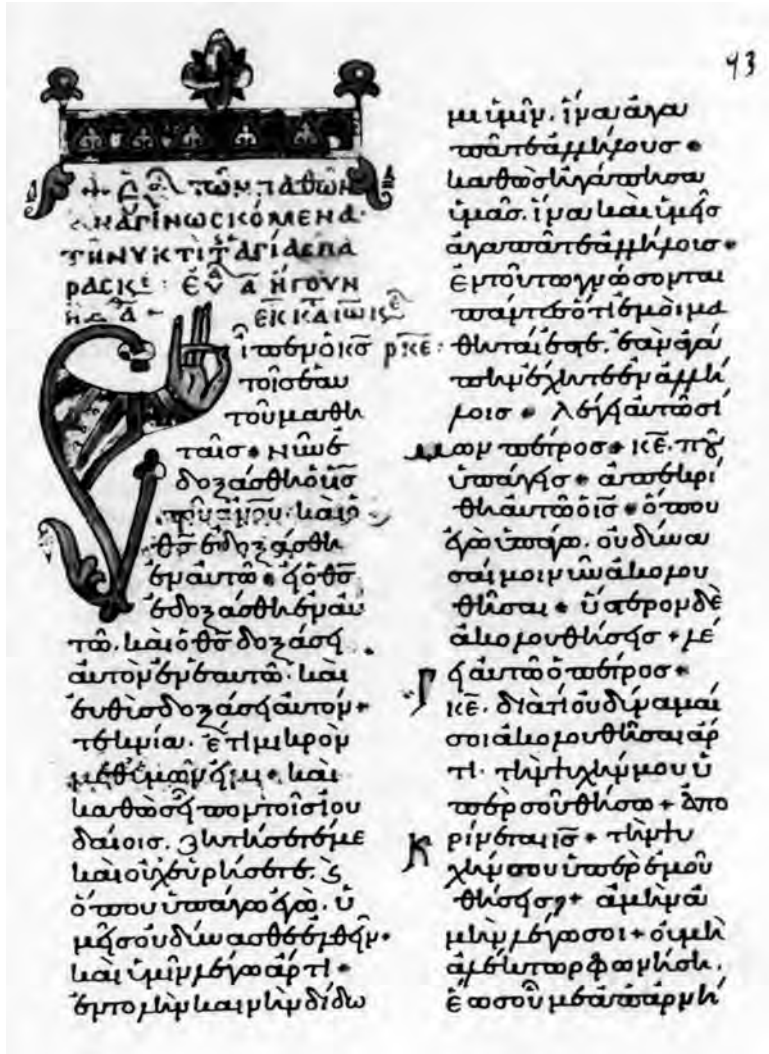 τῶν παθῶν
ἀναγινωσκόμενα·
τῆ νυκτὶ τ ἁγίας πα
ρασκε: εὐα α ἤγουν
ἶπεν ὁ κ̅ς̅
τοῖς ἑαυ
τοῦ μαθη
ταῖς· νῦν ἐ
δοξάσθη ὁ υ̅ς̅
τοῦ α̅ν̅ο̅υ̅· καὶ ὁ
θ̅ς̅ ἐδοξάσθη
ἐν αὐτῶ· εἰ ὁ θ̅ς̅
ἐδοξάσθη ἐν αὐ
τῶ, καὶ ὁ θ̅ς̅ δοξάσει
αὐτὸν ἐν ἑαυτῶ· καὶ
εὐθὺς δοξάσει αὐτόν+
τεκνία, ἔτι μικρὸν
μεθ' ὑμῶν εἰμι· καὶ
καθὼς εἶπον τοῖς ἰου
δαίοις, ζητήσετέ με
καὶ οὐχ εὑρήσετε, ϗ
ὅπου ὑπάγω ἐγὼ, ὑ
μεῖς οὐ δύνασθε ἐλθεῖν·
καὶ ὑμῖν λέγω ἄρτι·
ἐντολὴν καινὴν δίδω
93
μι ὑμῖν, ἵνα ἀγα
πᾶτε ἀλλήλους·
καθὼς ἠγάπησα
ὑμᾶς, ἵνα καὶ ὑμεῖς
ἀγαπᾶτε ἀλλήλοις·
ἐν τούτω γνώσονται
πάντες ὅτι ἐμοὶ μα
ρ̅κ̅ε̅: θηταί ἐστε, ἐὰν ἀγά
πην ἔχητε ἐν ἀλλή
λοις· λέγει αὐτῶ σί
μων πέτρος· κ̅ε̅, ποῦ
ὑπάγεις· ἀπεκρί
θη αὐτῶ ὁ ι̅ς̅· ὅπου
ἐγὼ ὑπάγω, οὐ δύνα
σαί μοι νῦν ἀκολου
θῆσαι· ὕστερον δὲ
ἀκολουθήσεις+ λέ
γει αὐτῶ ὁ πέτρος·
κ̅ε̅, διατί οὐ δύναμαί
σοι ἀκολουθῆσαι ἄρ
τι· τὴν ψυχήν μου ὑ
πὲρ σοῦ θήσω+ ἀπο
κρίνεται ι̅ς̅+ τὴν ψυ
χήν σου ὑπὲρ ἐμοῦ
θήσεις; ἀμὴν ἀ
μὴν λέγω σοι+ οὐ μὴ
ἀλέκτωρ φωνήση,
ἕως οὗ με ἀπαρνή